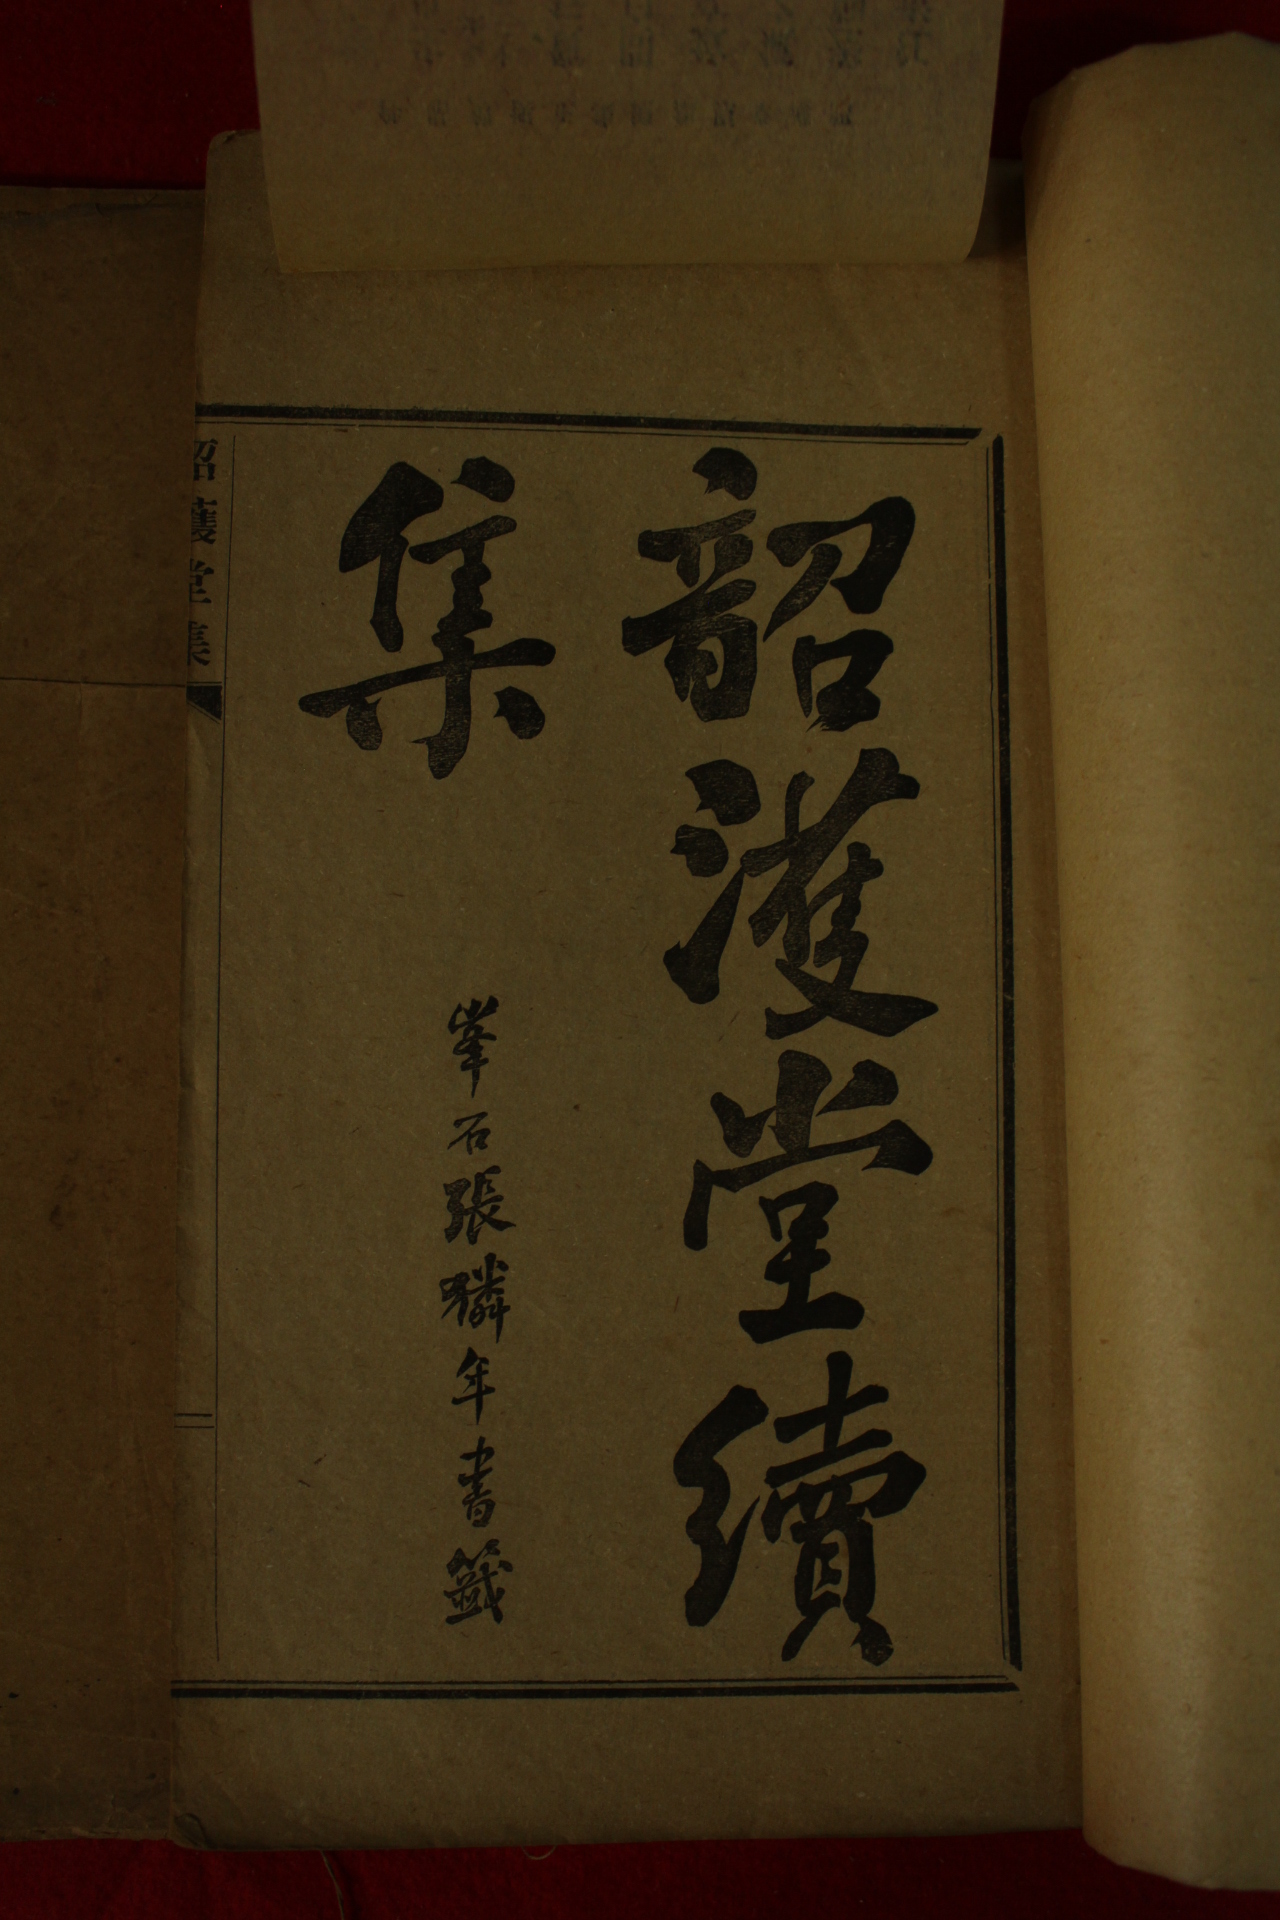 韶濩堂續
集
峯石張𪼛年書籤
韶濩堂集